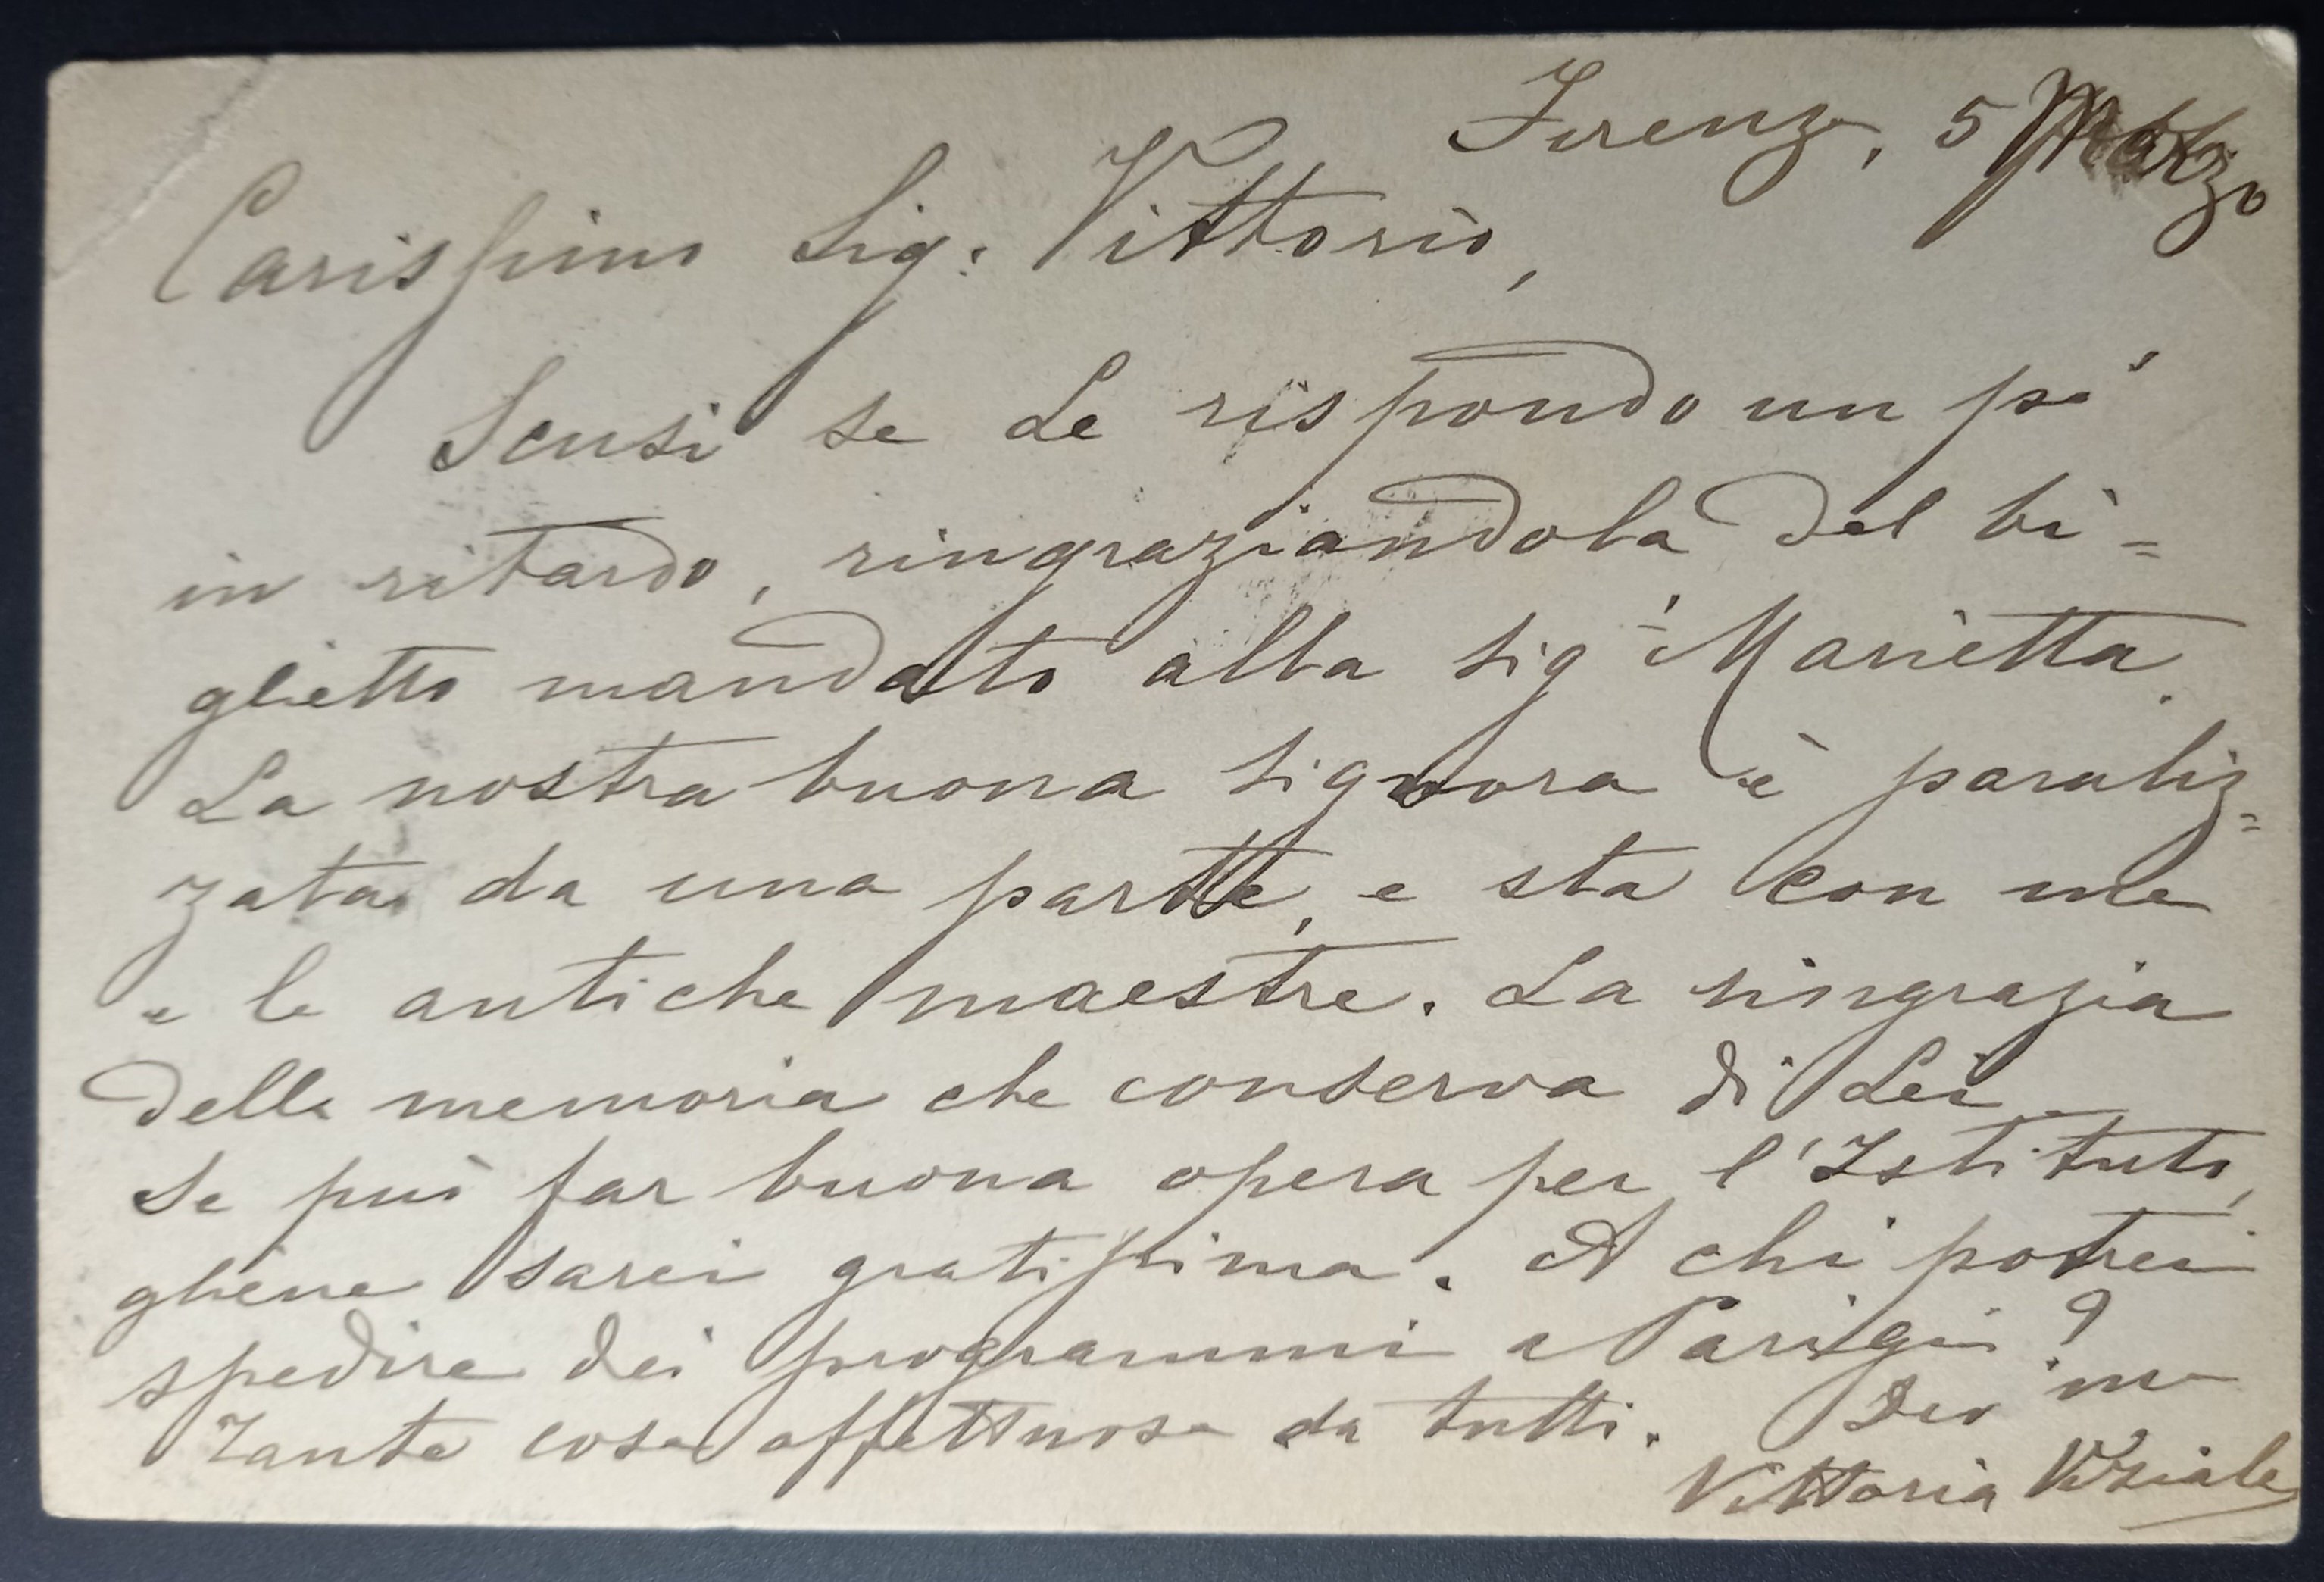 Firenze, 5 Marzo
Carissimo Sig: Vittorio,
Scusi se Le rispondo un po'
in ritardo, ringraziandola del bi=
glietto mandato alla Sig.ª Marietta.
La nostra buona Signora è paraliz=
zata da una parte, e sta con me
e le antiche maestre. La ringrazia
della memoria che conserva di Lei.
Se può far buona opera per l'Istituto,
gliene sarei gratissima. A chi potrei
spedire dei programmi a Parigi?
Tante cose affettuose da tutti. Dev ma
Vittoria Viziale